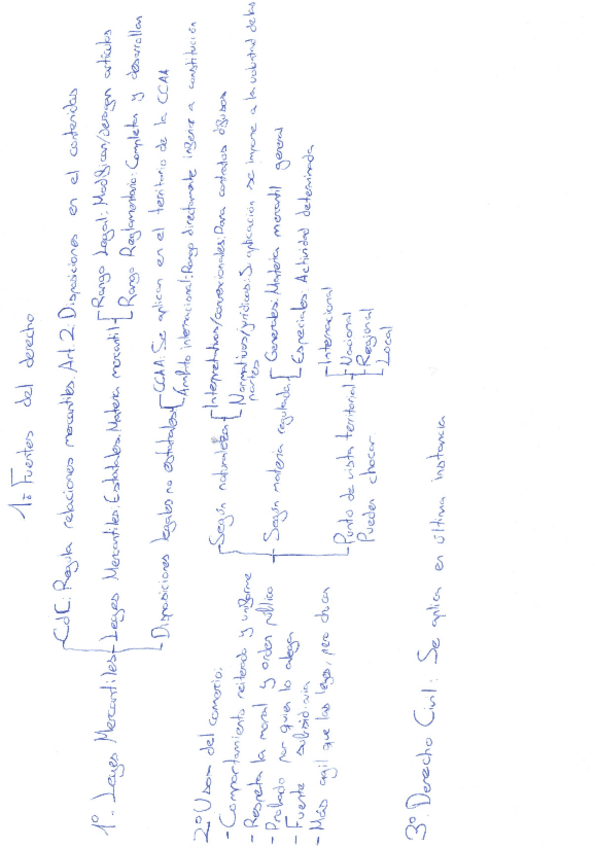 1: Fuentes del derecho
1º. Leyes Mercantiles
CdC: Regula relaciones mercantiles. Art. 2: Disposiciones en el contenidas
Leyes Mercantiles. Estatales. Materia mercantil
Rango Legal: Modifican/derogan artículos
Rango Reglamentario: Completas y desarrollan
Disposiciones legales no estatales
CCAA: Se aplican en el territorio de la CCAA
Ámbito internacional: Rango directamente inferior a constitución
2º Usos del comercio:
- Comportamiento reiterado y uniforme
- Respeta la moral y orden público
- Probado por quien lo alega
- Fuente subsidiaria
- Más ágil que las leyes, pero
Según naturaleza
Interpretativos/convencionales: Para contratos difusos
Normativos/jurídicos: Su aplicación se impone a la voluntad de las partes
Según materia regulada
Generales: Materia mercantil general
Especiales: Actividad determinada
Punto de vista territorial
Pueden chocar
Internacional
Nacional
Regional
Local
3º. Derecho Civil: Se aplica en última instancia